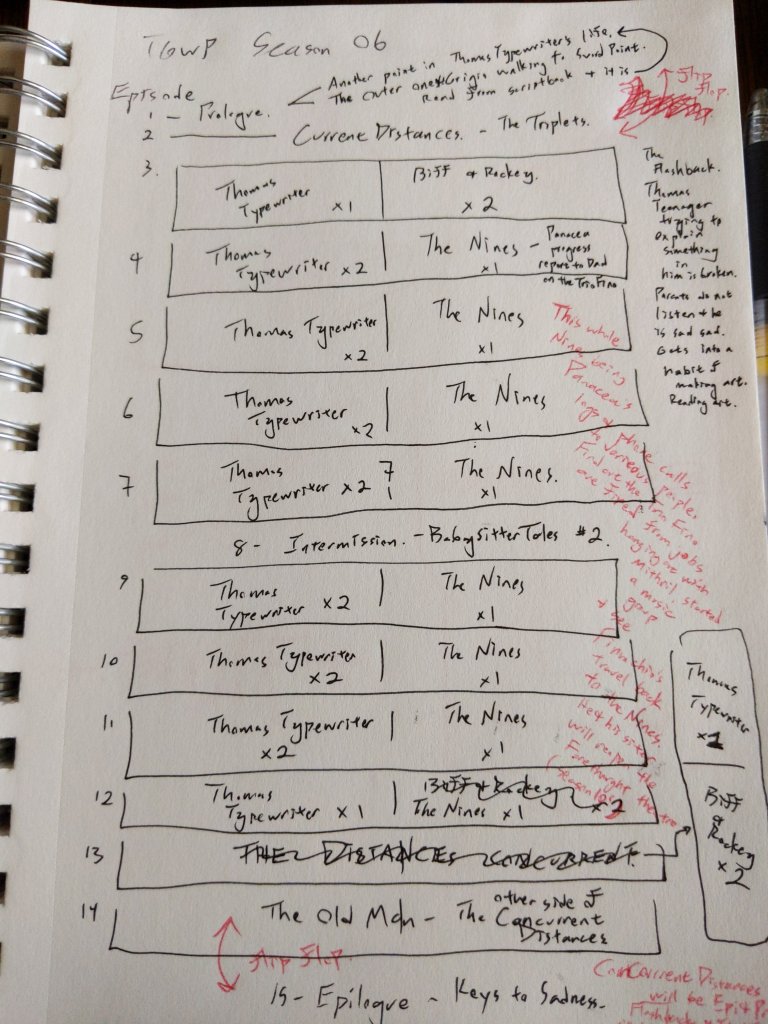 TGWP Season 06
Episode
1 - Prologue.
Another point in Thomas Typewriter's life.
The outer ones & Grigio walking to Sword Point.
Read from scriptback + it is
Flip Flop.
2 Current Distances. - The Triplets.
3. Thomas Typewriter x1 | Biff & Rockey. x2
4 Thomas Typewriter x2 | The Nines x1 - Panacea progress report to Dad on the Trio Fino
5 Thomas Typewriter x2 | The Nines x1
6 Thomas Typewriter x2 | The Nines x1
7 Thomas Typewriter x2 7 1 | The Nines. x1
8 - Intermission. - Babysitter Tales #2.
9 Thomas Typewriter x2 | The Nines x1
10 Thomas Typewriter x2 | The Nines x1
11 Thomas Typewriter x2 | The Nines x1
12 Thomas Typewriter x1 | Biff & Rockey x2 The Nines x1
13 THE DISTANCES CONCURRENT.
14 The Old Man - The other side of Concurrent Distances
Flip Flop
15 - Epilogue - Keys to Sadness.
The
Flashback.
Thomas
Teenager
trying to
explain
something
in
him is broken.
Parents do not
listen & he
is sad sad.
Gets into a
habit of
making art.
Reading art.
This whole
Nines being
Panacea's
logs of phone calls
to various people.
Find out the Trio Fino
are fired from jobs
hanging out with
Mithril started
a music
group
+ see
Pinocchio's
travel back
to the Nines.
his sister
will reopen the
Forethought the
(Season 10)
Thomas
Typewriter
x2
Biff
&
Rockey
x2
Concurrent Distances
will be
Flashback